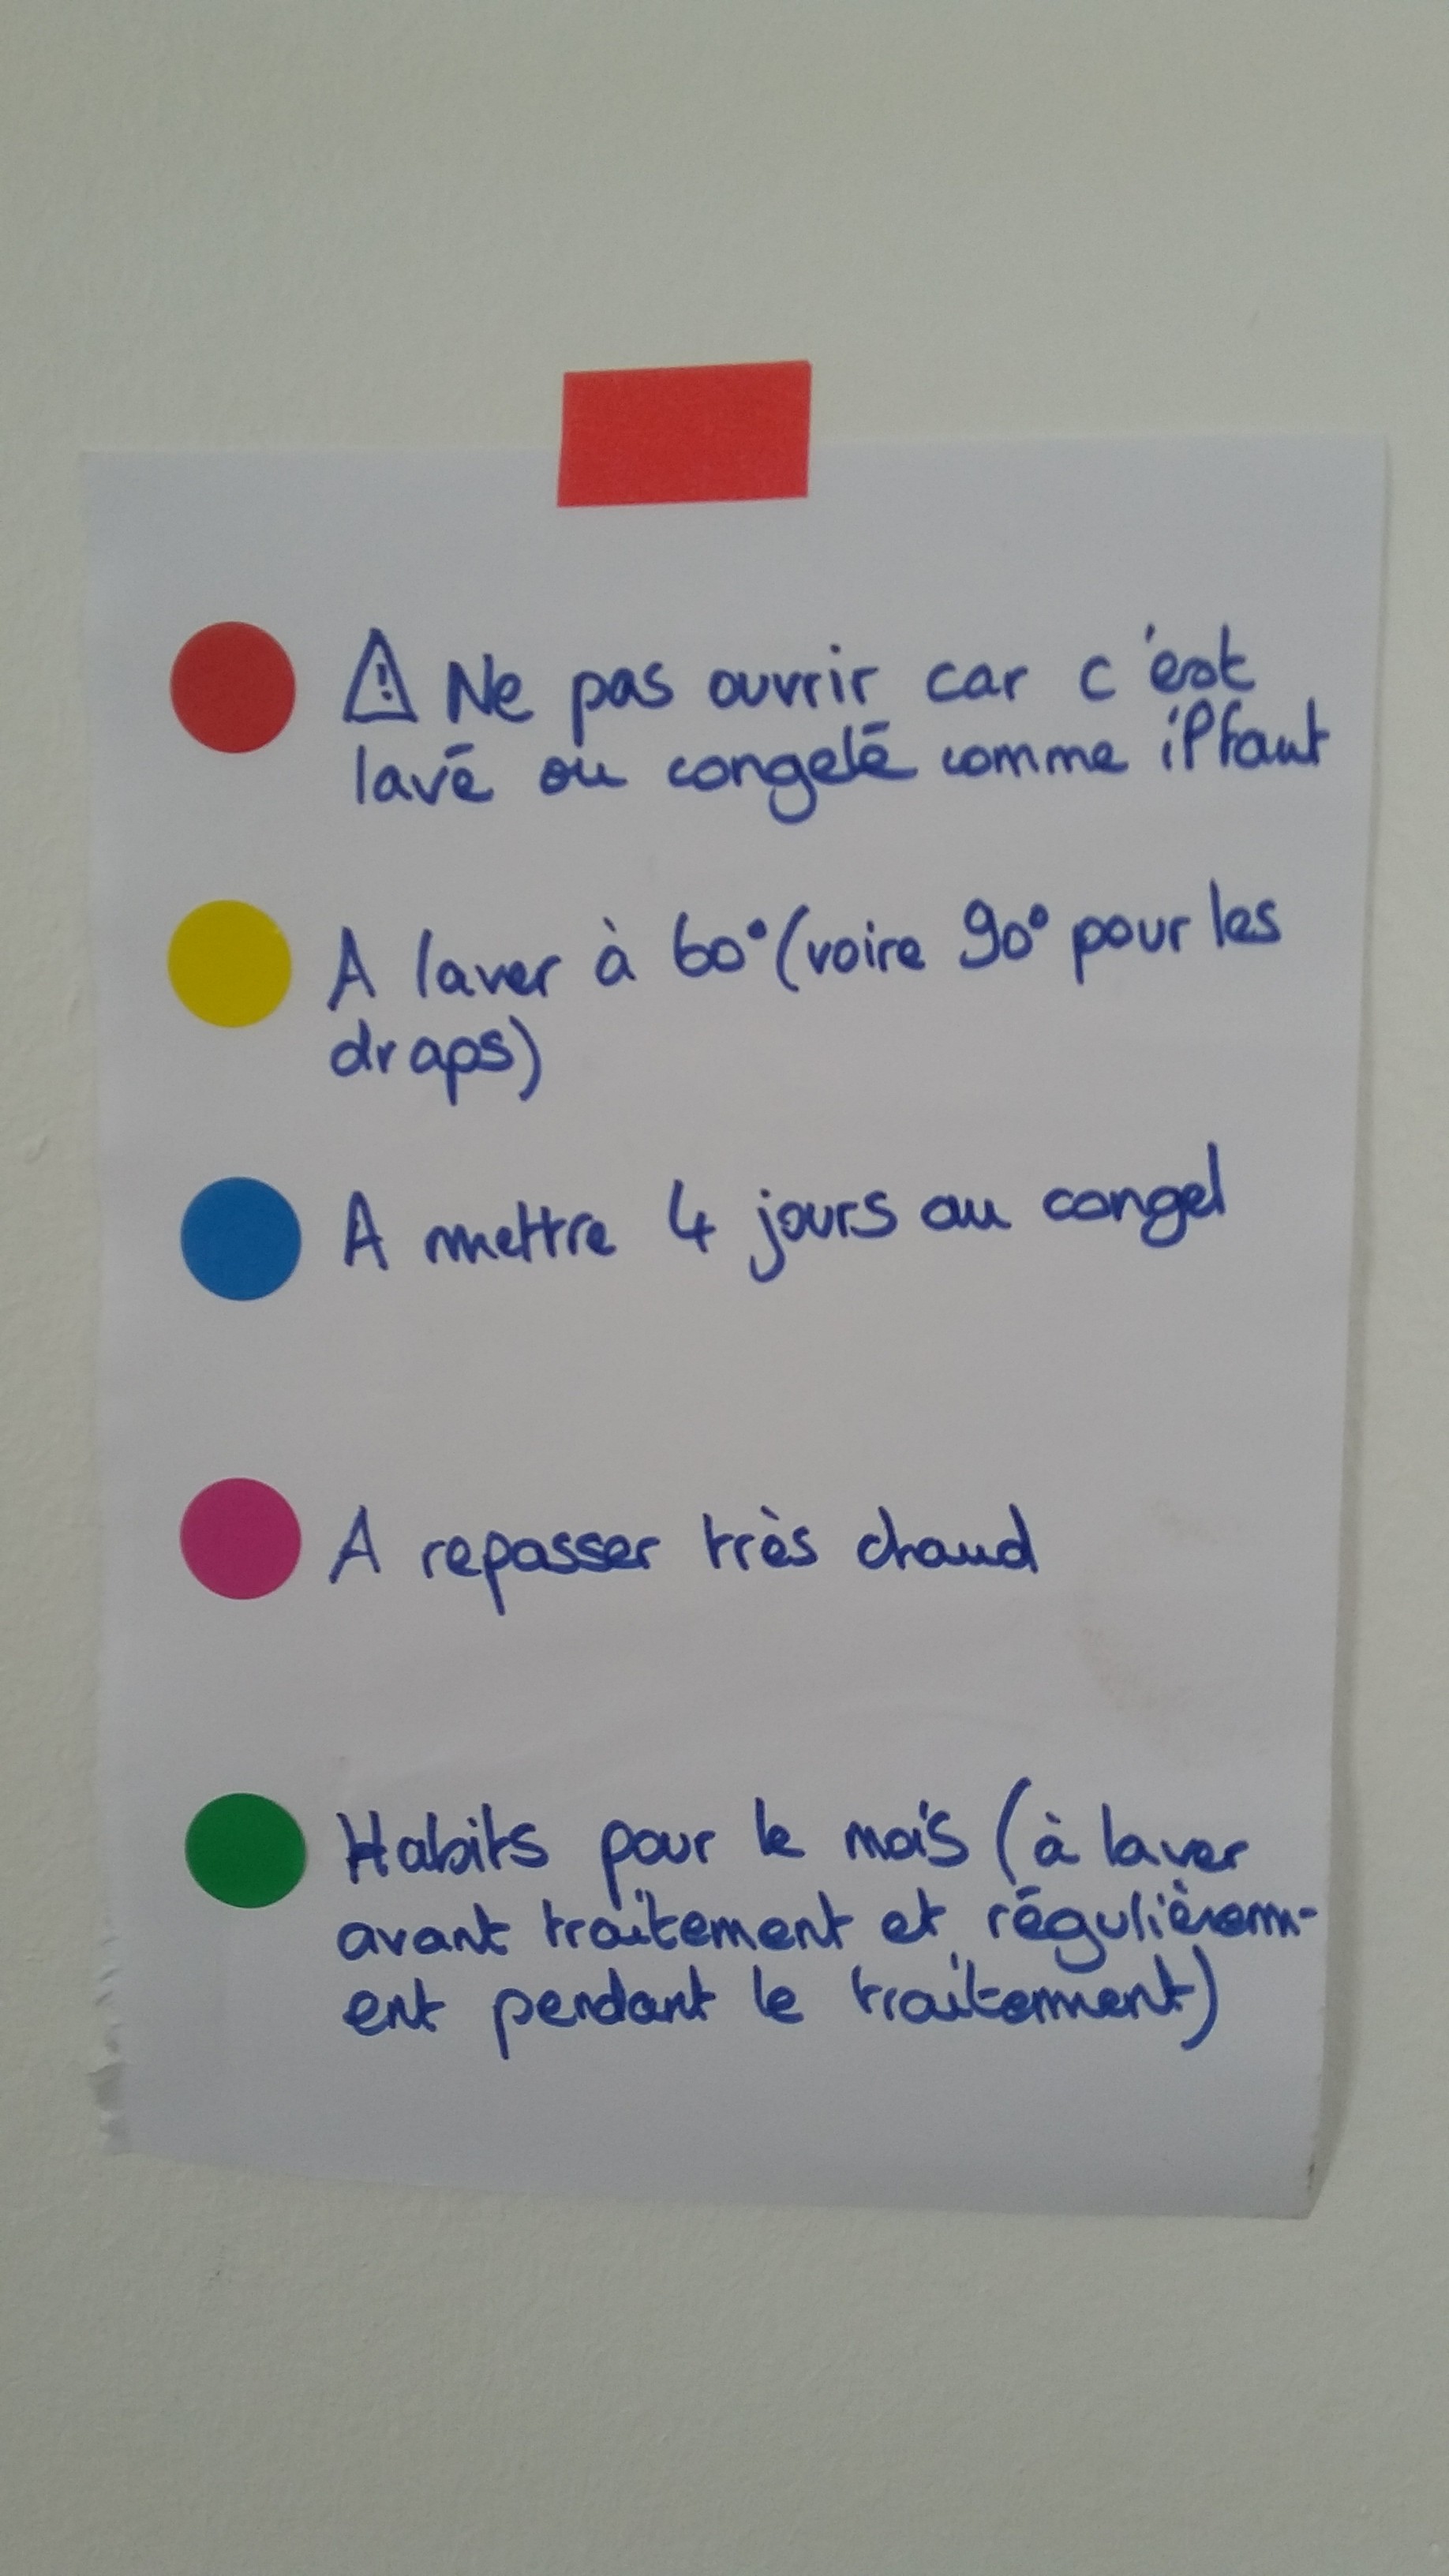 ⚠ Ne pas ouvrir car c'est
lavé ou congelé comme il faut
A laver à 60° (voire 90° pour les
draps)
A mettre 4 jours au congel
A repasser très chaud
Habits pour le mois (à laver
avant traitement et régulièrem-
ent pendant le traitement)